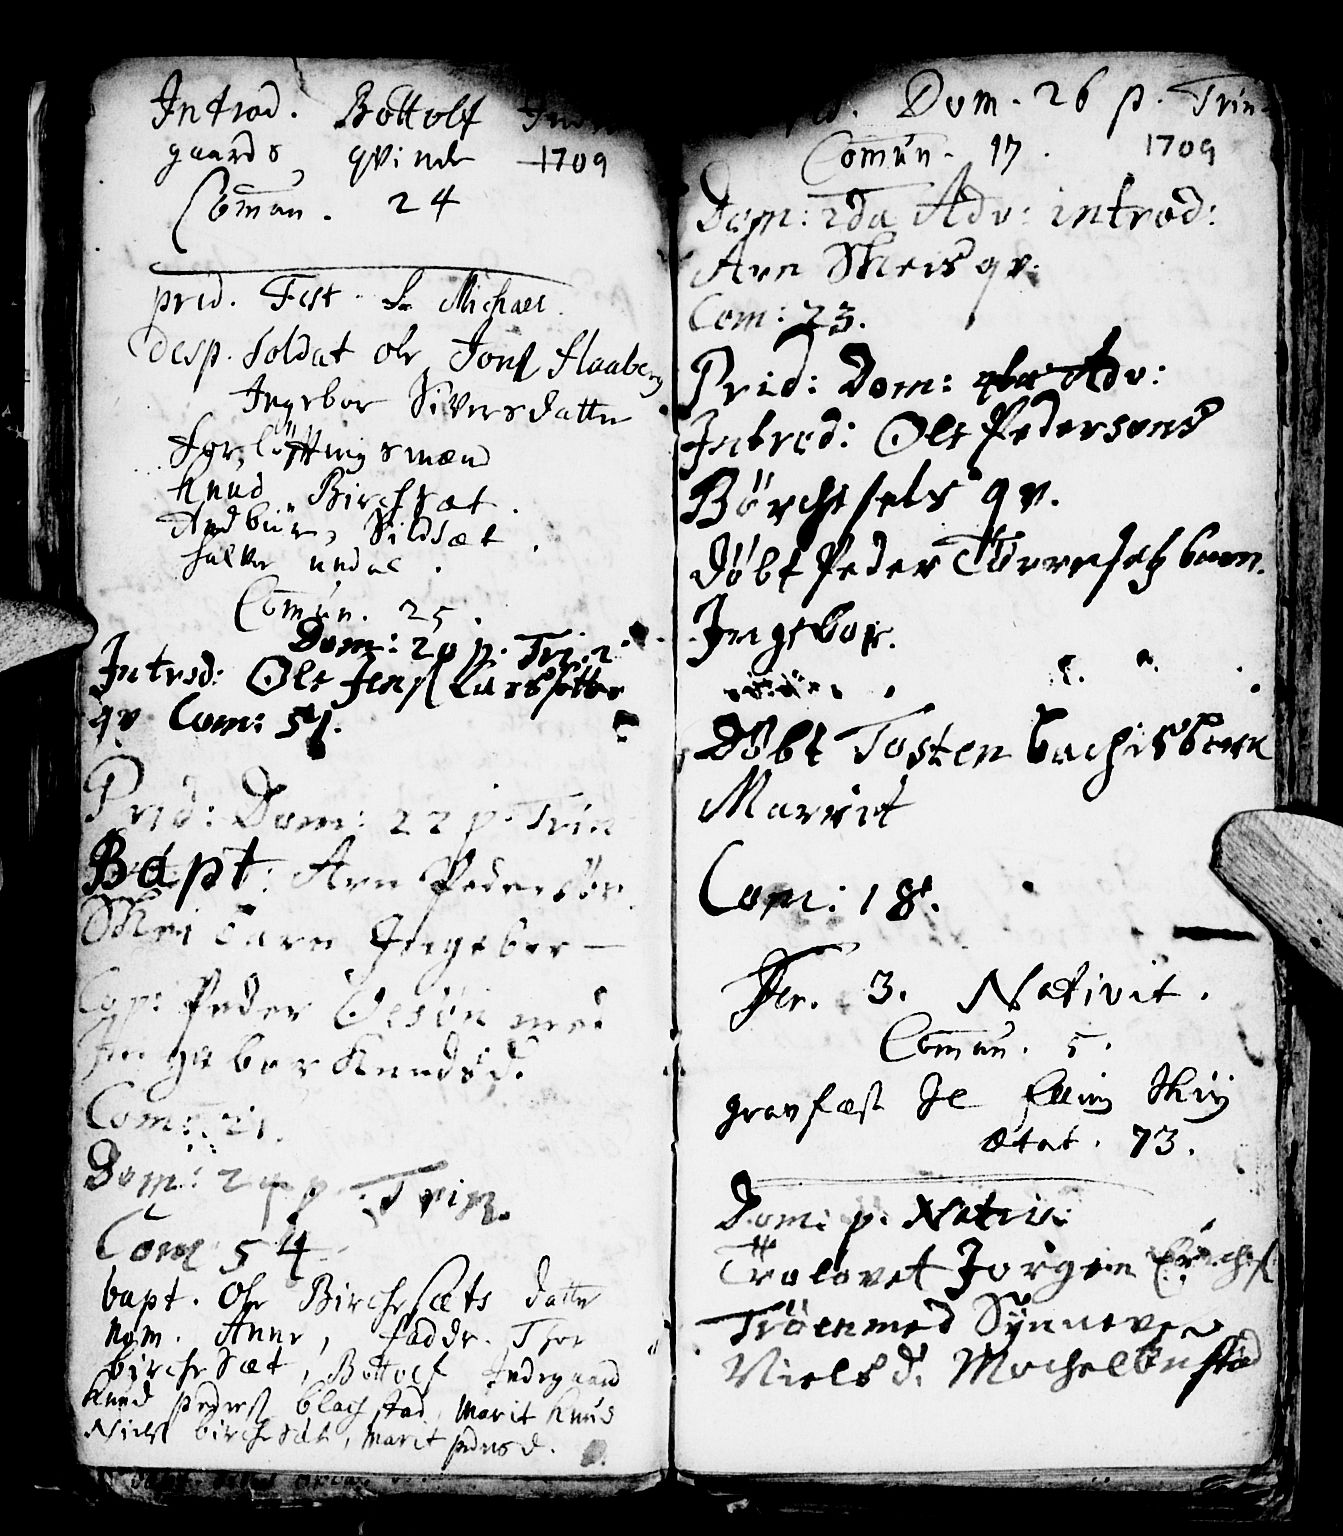 Introd. Bottolf Ind
gaards qvinde 1709
Comun. 24
prid. Fest. S. Michael.
desp. Soldat Ole Jons Haaberg
Ingebor Siversdatter
forløftningsmænd
Knud Birchsæt.
Sildsæt.
halvor undal.
Comun. 25.
Dom: 20 p. Trin.
Introd: Ole Jens
qv Com: 51.
Prid: Dom: 22 p. Trin
Bapt: Arn Pedersøn
Skei barn Ingebor
Cop: Peder Olsøn med
Ingebor Knudsd.
Com: 21.
Dom: 24 p. Trin.
Com 54
bapt. Ole Birchesæts datter
nom. Anne, faddr. Thor
birchesæt, Bottolf Indregaard
Knud peders blachstad, Marit Knuds
Niels birchesæt, Marit pedersd.
Dom. 26 p. Trin.
Comun. 17. 1709
Dom: 2da Adv: introd:
Arn Skeis qv.
Com: 23.
Prid: Dom: 4ta Adv:
Introd: Ole Pedersøns
Börchesets qv.
döbt Peder barn.
Ingebor.
Döbt Tosten bachis barn
Marrit
Com: 18.
Fer. 3. Nativit.
Comun. 5.
gravfæst Sl Elling Skeij
ætat. 73.
Dom: p. Nativ:
Trolovet Jorgen
Tröen med Synneve
Nielsd. Mochelbustad